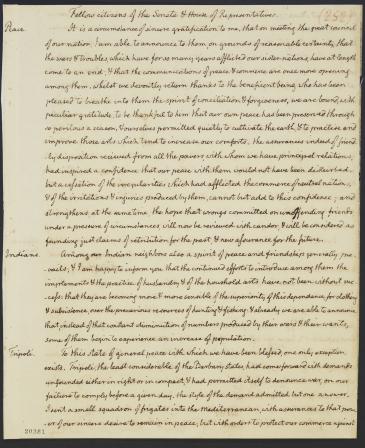 Fellow citizens of the Senate & House of Representatives.
Peace. It is a circumstance of sincere gratification to me, that on meeting the great council
of our nation, I am able to announce to them on grounds of reasonable certainty, that
the wars & troubles, which have for so many years afflicted our sister-nations, have at length
come to an end; & that the communications of peace & commerce are once more opening
among them. whilst we devoutly return thanks to the beneficent being who has been
pleased to breathe into them the spirit of conciliation & forgiveness, we are bound, with
peculiar gratitude, to be thankful to him that our own peace has been preserved through
so perilous a season, & ourselves permitted quietly to cultivate the earth, & to practise and
improve those arts which tend to increase our comforts. the assurances indeed of friend-
ly disposition received from all the powers with whom we have principal relations,
had inspired a confidence that our peace with them would not have been disturbed.
but a cessation of the irregularities which had afflicted the commerce of neutral nations,
& of the irritations & injuries produced by them, cannot but add to this confidence; and
strengthens at the same time the hope that wrongs committed on unoffending friends
under a pressure of circumstances will now be reviewed with candor, & will be considered as
founding just claims of retribution for the past, & new assurance for the future.
Indians. Among our Indian neighbors also a spirit of peace and friendship generally pre-
vails; & I am happy to inform you that the continued efforts to introduce among them the
implements & the practice of husbandry & of the household arts have not been without suc-
cess: that they are becoming more & more sensible of the superiority of this dependance, for clothing
& subsistence, over the precarious resources of hunting & fishing: & already we are able to announce
that instead of that constant diminution of numbers produced by their wars & their wants,
some of them begin to experience an increase of population.
Tripoli. To this state of general peace with which we have been blessed, one only exception
exists. Tripoli, the least considerable of the Barbary states, had come forward with demands
unfounded either in right or in compact, & had permitted itself to denounce war, on our
failure to comply before a given day. the style of the demand admitted but one answer.
I sent a small squadron of frigates into the Mediterranean, with assurances to that pow-
er of our sincere desire to remain in peace; but with orders to protect our commerce against
20381